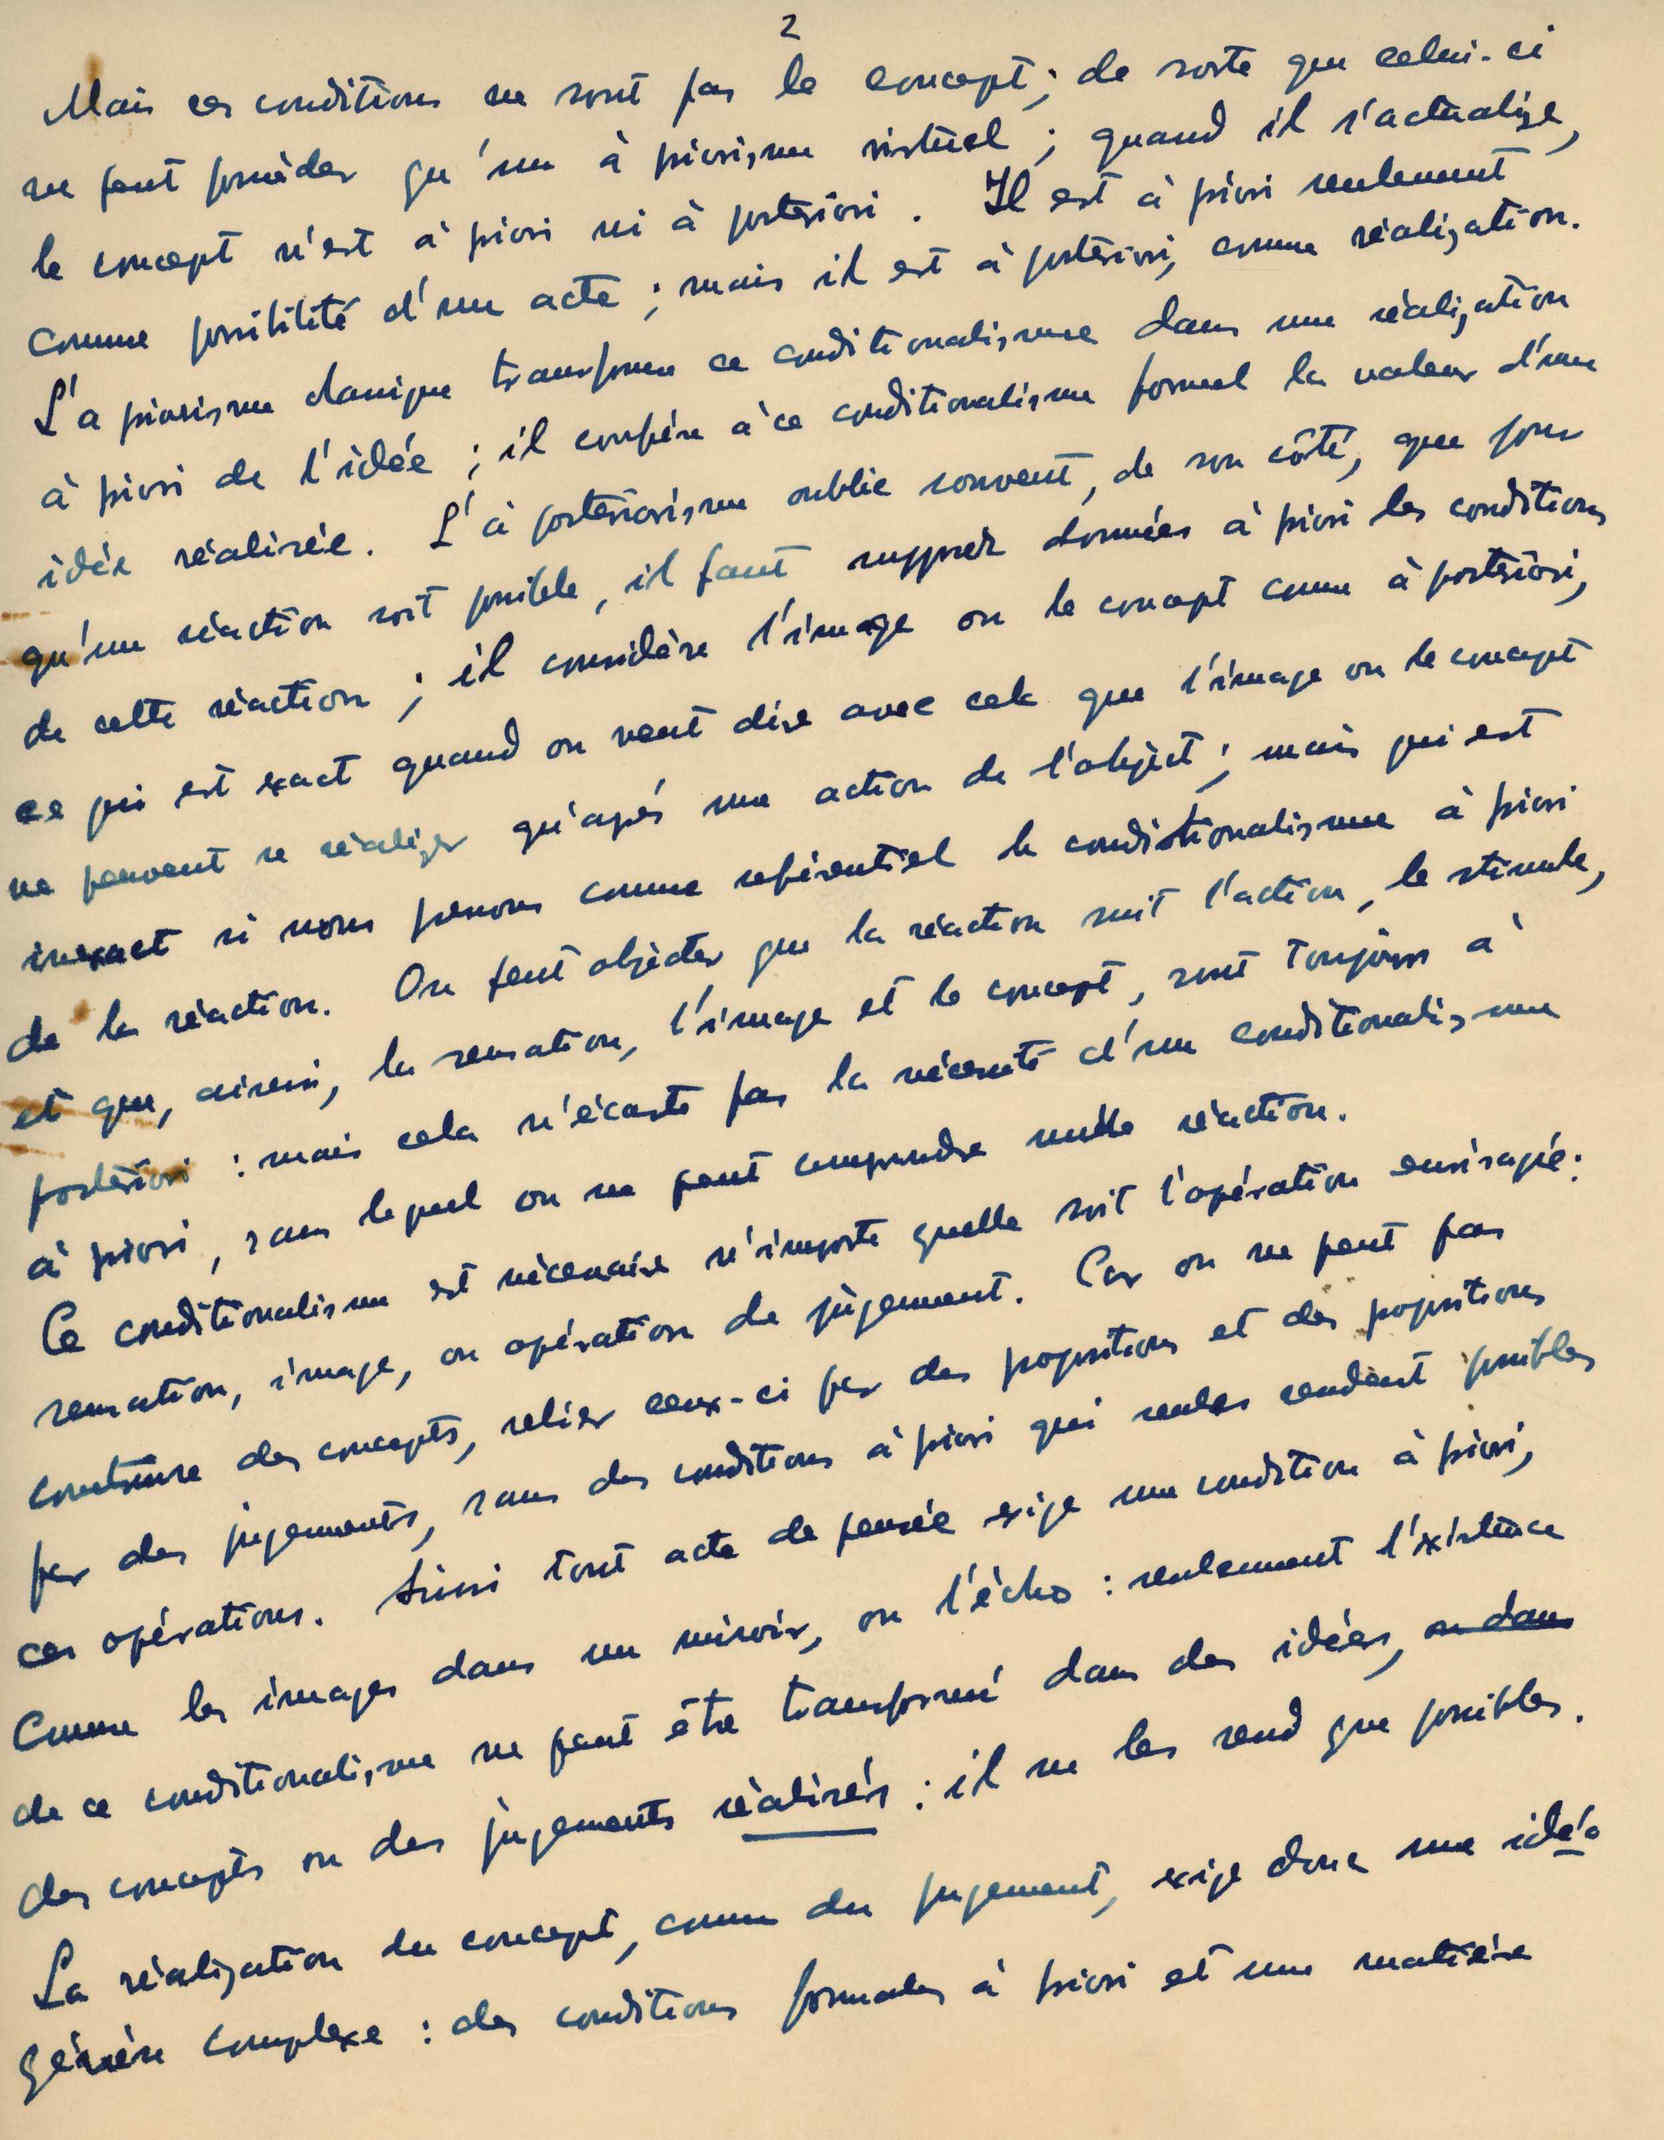 2
Mais ces conditions ne sont pas le concept; de sorte que celui-ci
ne peut posséder qu'un à priorisme virtuel; quand il s'actualize,
le concept n'est à priori ni à posteriori. Il est à priori seulement
comme possibilité d'un acte; mais il est à postériori, comme réalization.
L'a priorisme classique transforme ce conditionalisme dans une réalization
à priori de l'idée; il confère à ce conditionalisme formel la valeur d'une
idée réalisée. L'à posteriorisme oublie souvent, de son côté, que pour
qu'une réaction soit possible, il faut supposer données à priori les conditions
de cette réaction; il considère l'image ou le concept comme à posteriori,
ce qui est exact quand on veut dire avec cela que l'image ou le concept
ne peuvent se réalizer qu'après une action de l'object; mais qui est
inexact si nous prenons comme referentiel le conditionalisme à priori
de la réaction. On peut objecter que la réaction suit l'action, le stimule,
et que, ainsi, la sensation, l'image et le concept, sont toujours à
posteriori: mais cela n'écarte pas la nécessité d'un conditionalisme
à priori, sans lequel on ne peut comprendre nulle réaction.
Ce conditionalisme est nécessaire n'importe quelle soit l'opération envisagée:
sensation, image, ou opération de jugement. Car on ne peut pas
construire des concepts, relier ceux-ci par des propositions et des propositions
par des jugements, sans des conditions à priori qui seules rendent possibles
ces opérations. Ainsi tout acte de pensée exige une condition à priori,
comme les images dans un miroir, ou l'écho: seulement l'existence
de ce conditionalisme ne peut être transformé dans des idées, ou dans
des concepts ou des jugements réalisés: il ne les rend que possibles.
La réalization du concept, comme du jugement, exige donc une idéo
génèse complexe: des conditions formales à priori et une matière